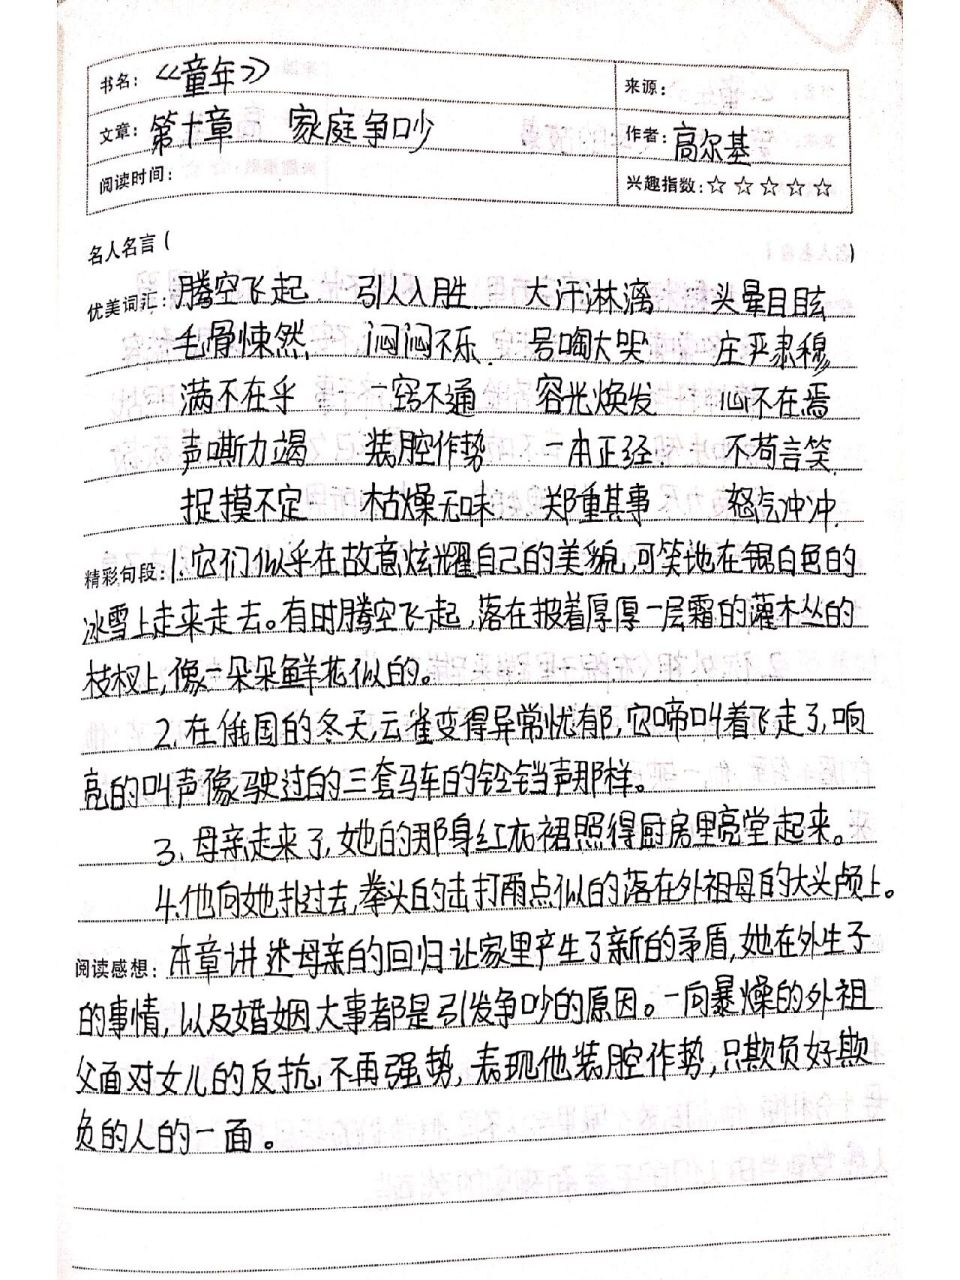 书名：《童年》 来源：
文章：第十章 家庭争吵 作者：高尔基
阅读时间： 兴趣指数：☆☆☆☆☆
名人名言（ ）
优美词汇：腾空飞起 引人入胜 大汗淋漓 头晕目眩
毛骨悚然 闷闷不乐 号啕大哭 庄严肃穆
满不在乎 一窍不通 容光焕发 心不在焉
声嘶力竭 装腔作势 一本正经 不苟言笑
捉摸不定 枯燥无味 郑重其事 怒气冲冲
精彩句段：1、它们似乎在故意炫耀自己的美貌,可笑地在银白色的
冰雪上走来走去。有时腾空飞起,落在披着厚厚一层霜的灌木丛的
枝杈上,像一朵朵鲜花似的。
2、在俄国的冬天,云雀变得异常忧郁,它啼叫着飞走了,响
亮的叫声像驶过的三套马车的铃铛声那样。
3、母亲走来了,她的那身红衣裙照得厨房里亮堂起来。
4、他向她扑过去,拳头的击打雨点似的落在外祖母的大头颅上。
阅读感想：本章讲述母亲的回归让家里产生了新的矛盾,她在外生子
的事情,以及婚姻大事都是引发争吵的原因。一向暴燥的外祖
父面对女儿的反抗,不再强势,表现他装腔作势,只欺负好欺
负的人的一面。